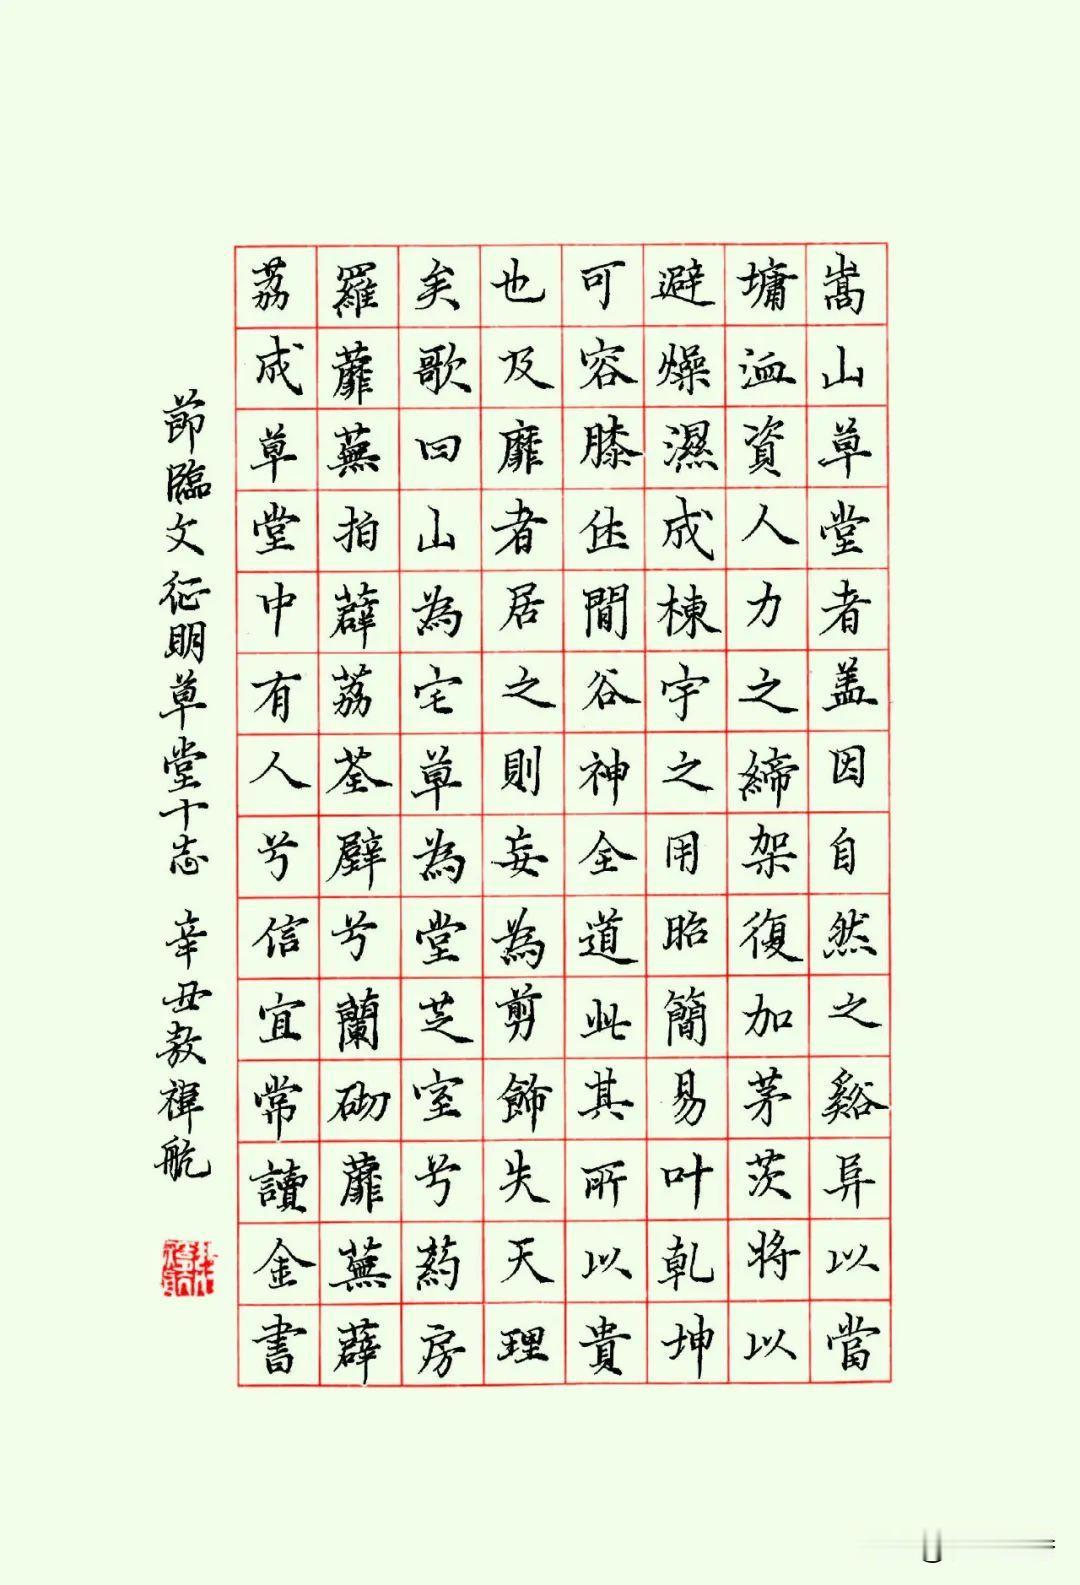 嵩山草堂者盖因自然之谿阜以當
墉洫資人力之締架復加茅茨將以
避燥濕成棟宇之用昭簡易叶乾坤
可容膝休閒谷神全道此其所以貴
也及靡者居之則妄為剪飾失天理
矣歌曰山為宅草為堂芝室兮葯房
羅蘼蕪拍薜荔荃壁兮蘭砌蘼蕪薜
荔成草堂中有人兮信宜常讀金書
節臨文征明草堂十志 辛丑敖禕航